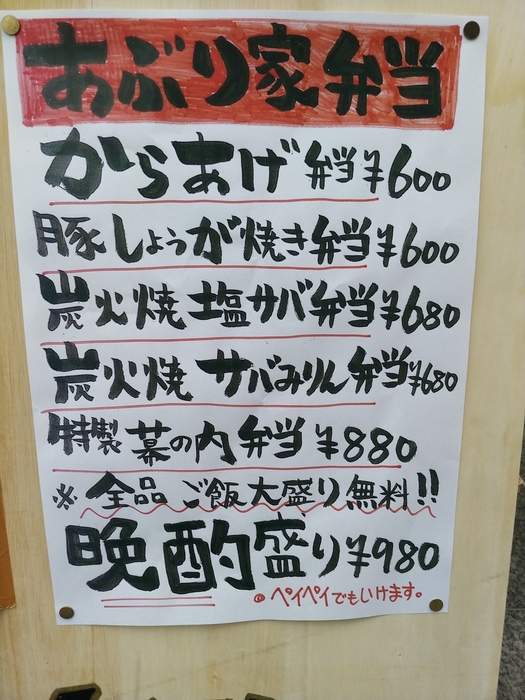 あぶり家弁当
からあげ弁当¥600
豚しょうが焼き弁当¥600
炭火焼塩サバ弁当¥680
炭火焼サバみりん弁当¥680
特製幕の内弁当¥880
※全品ご飯大盛り無料!!
晩酌盛り¥980
◎ペイペイでもいけます。